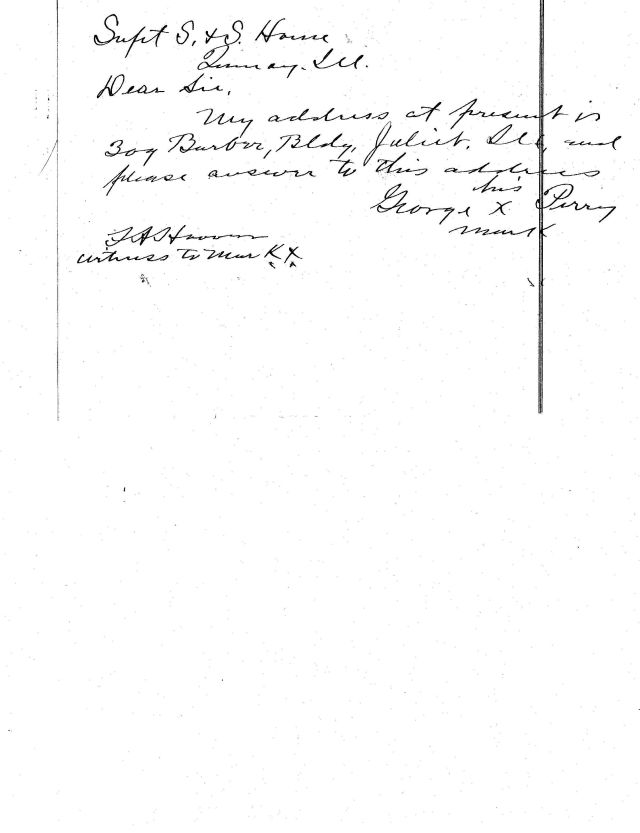 Supt S. & S. Home
Quincy. Ill.
Dear Sir,
My address at present is
309 Barber, Bldg, Joliet. Ill, and
please answer to this address
his
George X Perry
mark
witness to mark X